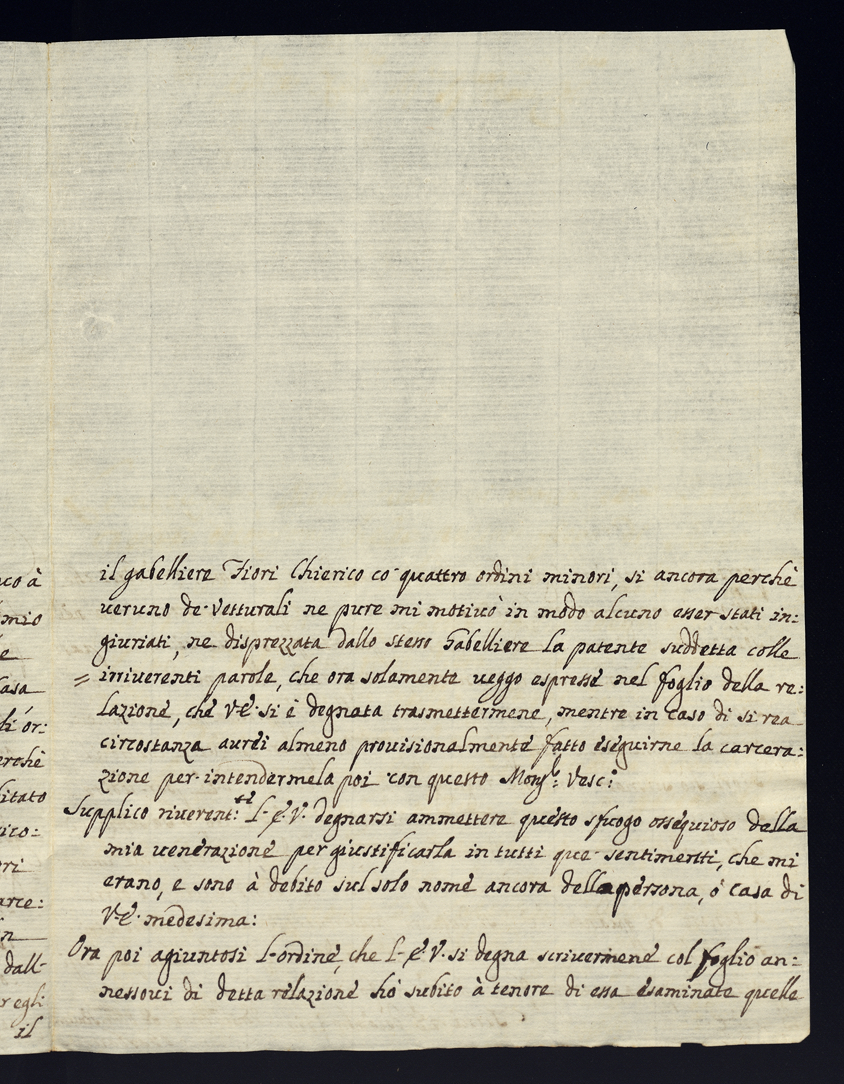 uco à
mio
e
Casa
di ór:
erchè
litato
rico:
ori
arce:
n
dall-
r egli
il
il gabelliere Fiori Chierico co' quattro ordini minori, si ancora perchè
ueruno de' Vetturali ne pure mi motiuò in modo alcuno esser stati in:
giuriati, ne disprezzata dallo stesso Gabelliere la patente suddetta colle
= irriuerenti parole, che ora solamente ueggo espresse nel foglio della re:
lazione, che V·E· si è degnata trasmettermene, mentre in caso di si rea
circostanza aurei almeno prouisionalmente fatto eseguirne la carcera:
zione per intendermela poi con questo Mons.r Vesc:o
Supplico riuerent:te L'E·V· degnarsi ammettere questo sfuogo ossequioso della
mia uenerazione per giustificarla in tutti que' sentimenti, che mi
erano, e sono à debito sul solo nome ancora della persona, ò casa di
V·E· medesima:
Ora poi agiuntosi l'ordine, che L'E·V· si degna scriuermene col foglio an:
nessoui di detta relazione hò subito à tenore di essa esaminate quelle